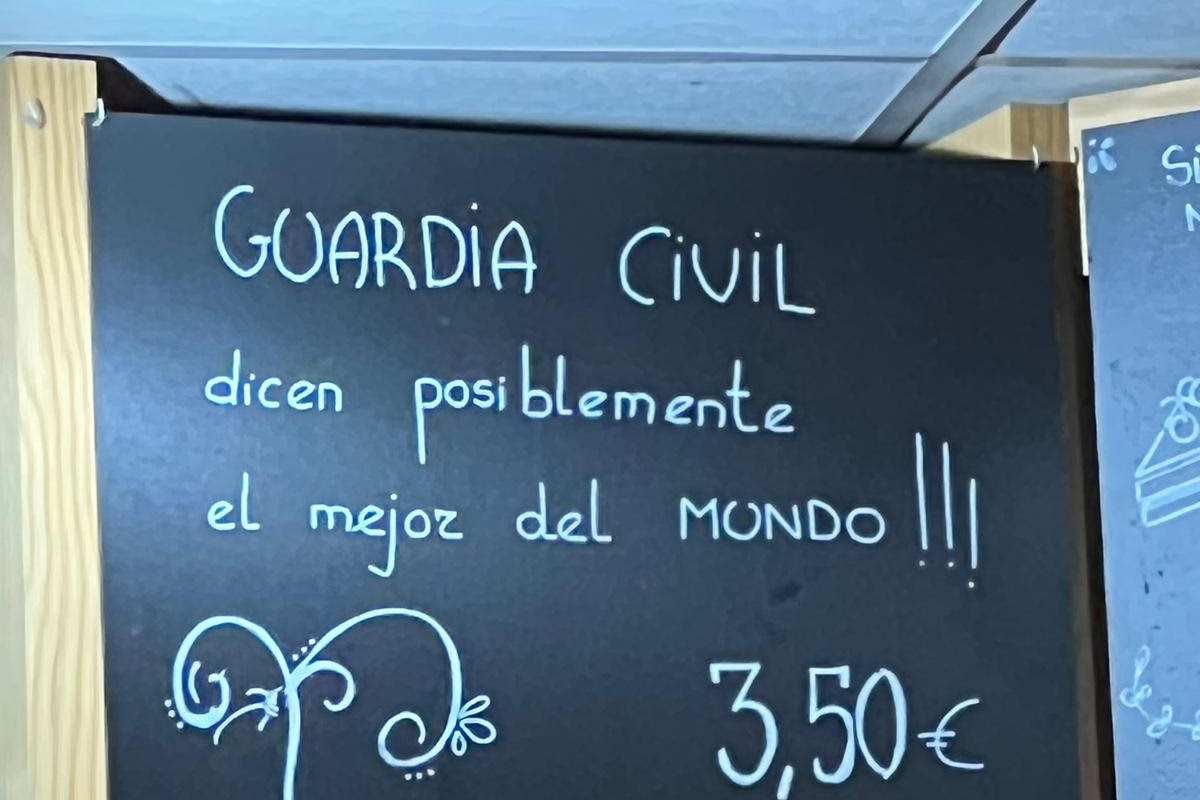 GUARDiA CiViL
dicen posiblemente
el mejor del MUNDO !!!
3,50 €
Si